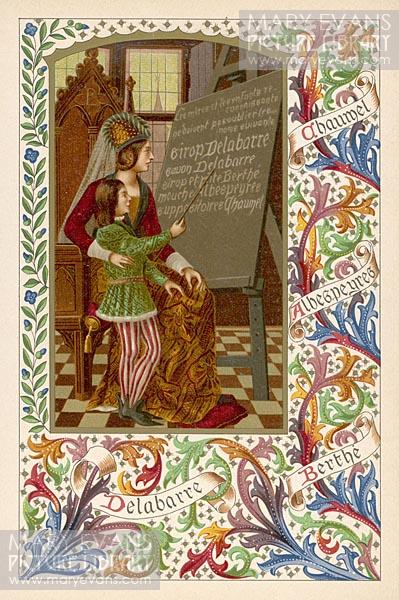 MARY EVANS
PICTURE LIBRARY
www.maryevans.com
ne doivent pas oublier les
noms suivants
Sirop Delabarre
Savon Delabarre
Sirop et pate Berthe
mouche Albespeyre
suppositoire Chaumel
Chaumel
Albespeyres
Berthe
Delabarre
MARY EVANS
PICTURE LIBRARY
www.maryevans.com